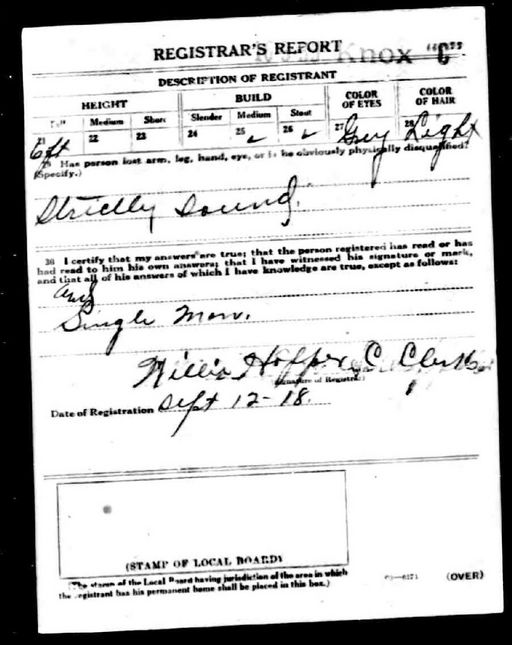 REGISTRAR'S REPORT Knox "C"
DESCRIPTION OF REGISTRANT
HEIGHT BUILD COLOR OF EYES COLOR OF HAIR
Medium Short Slender Medium Stout
21 22 23 24 25 26 27 28
6 ft Grey Light
Has person lost arm, leg, hand, eye, or is he obviously physically disqualified?
(Specify.)
Strictly sound.
30 I certify that my answers are true; that the person registered has read or has
had read to him his own answers; that I have witnessed his signature or mark,
and that all of his answers of which I have knowledge are true, except as follows:
and
Single man.
Willis Hopper C. Clerk
(Signature of Registrar)
Date of Registration Sept 12-18.
(STAMP OF LOCAL BOARD)
(The stamp of the Local Board having jurisdiction of the area in which
the registrant has his permanent home shall be placed in this box.)
(OVER)